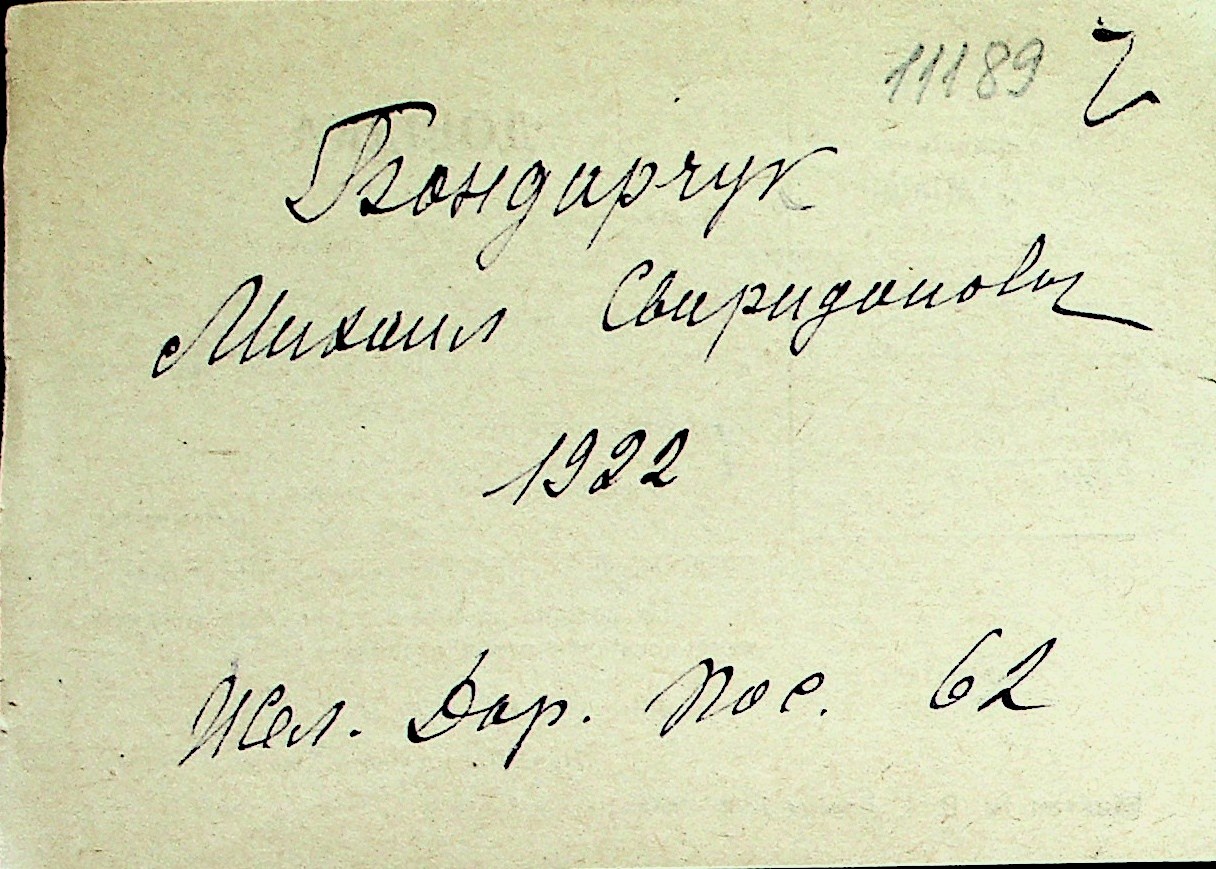 11189
Бондарчук
Михаил Свиридонов
1922
Жел. Дор. пос. 62